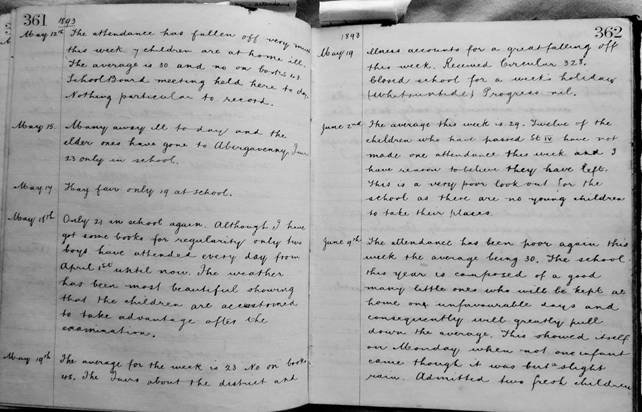 361 1893
May 12th The attendance has fallen off very much
this week 7 children are at home ill.
The average is 30 and no on books 48.
School Board meeting held here to day.
Nothing particular to record.
May 15. Many away ill to day and the
elder ones have gone to Abergavenny Fair
23 only in school.
May 17 Hay fair only 19 at school.
May 18th Only 21 in school again. Although I have
got some books for regularity only two
boys have attended every day from
April 1st until now. The weather
has been most beautiful showing
that the children are accustomed
to take advantage after the
examination.
May 19th The average for the week is 23 No on books
48. The Fairs about the district and
1893 362
May 19 illness accounts for a great falling off
this week. Received Circular 328.
Closed school for a week's holiday
(Whitsuntide) Progress nil.
June 2nd The average this week is 29. Twelve of the
children who have passed St IV have not
made one attendance this week and I
have reason to believe they have left.
This is a very poor look out for the
school as there are no young children
to take their places.
June 9th The attendance has been poor again this
week the average being 30. The school
this year is composed of a good
many little ones who will be kept at
home on unfavourable days and
consequently will greatly pull
down the average. This showed itself
on Monday when not one infant
came though it was but a slight
rain. Admitted two fresh children